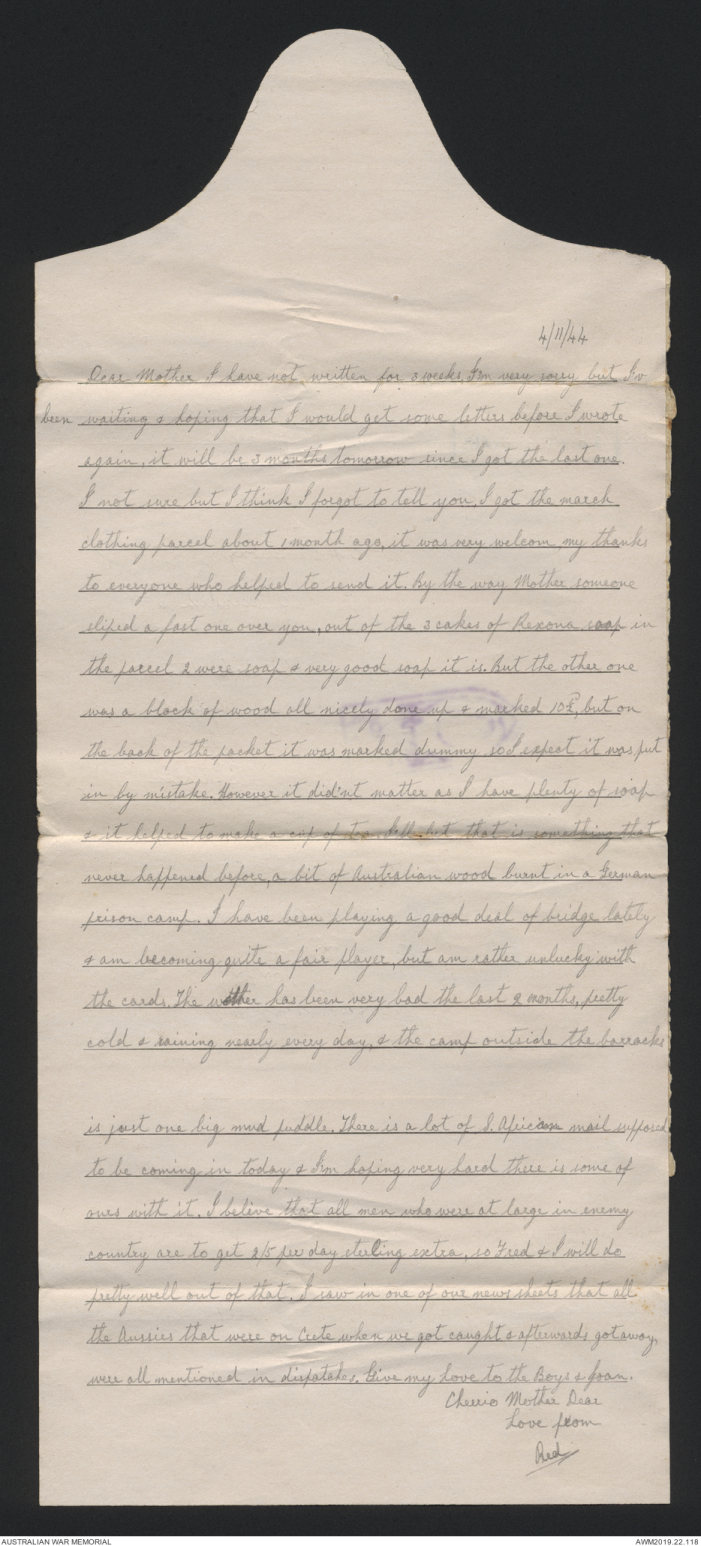 4/11/44
Dear Mother I have not written for 3 weeks, I'm very sorry but I'v
been waiting & hoping that I would get some letters before I wrote
again, it will be 3 months tomorrow since I got the last one.
I not sure but I think I forgot to tell you, I got the march
clothing parcel about 1 month ago, it was very welcom, my thanks
to everyone who helped to send it. By the way Mother someone
sliped a fast one over you, out of the 3 cakes of Rexona soap in
the parcel 2 were soap & very good soap it is. But the other one
was a block of wood all nicely done up & marked 10½, but on
the back of the packet it was marked dummy so I expect it was put
in by mistake. However it did'nt matter as I have plenty of soap
& it helped to make a cup of tea. I'll bet that is something that
never happened before, a bit of Australian wood burnt in a German
prison camp. I have been playing a good deal of bridge lately
& am becoming quite a fair player, but am rather unlucky with
the cards. The wether has been very bad the last 2 months, pretty
cold & raining nearly every day, & the camp outside the barracks
is just one big mud puddle. There is a lot of S. African mail supposed
to be coming in today & I'm hoping very hard there is some of
ours with it. I belive that all men who were at large in enemy
country are to get 2/5 per day sterling extra, so Fred & I will do
pretty well out of that. I saw in one of our news sheets that all
the Aussies that were on Crete when we got caught & afterwards got away,
were all mentioned in dispatches. Give my love to the Boys & Joan.
Cheerio Mother Dear
Love from
Red
AUSTRALIAN WAR MEMORIAL
AWM2019.22.118